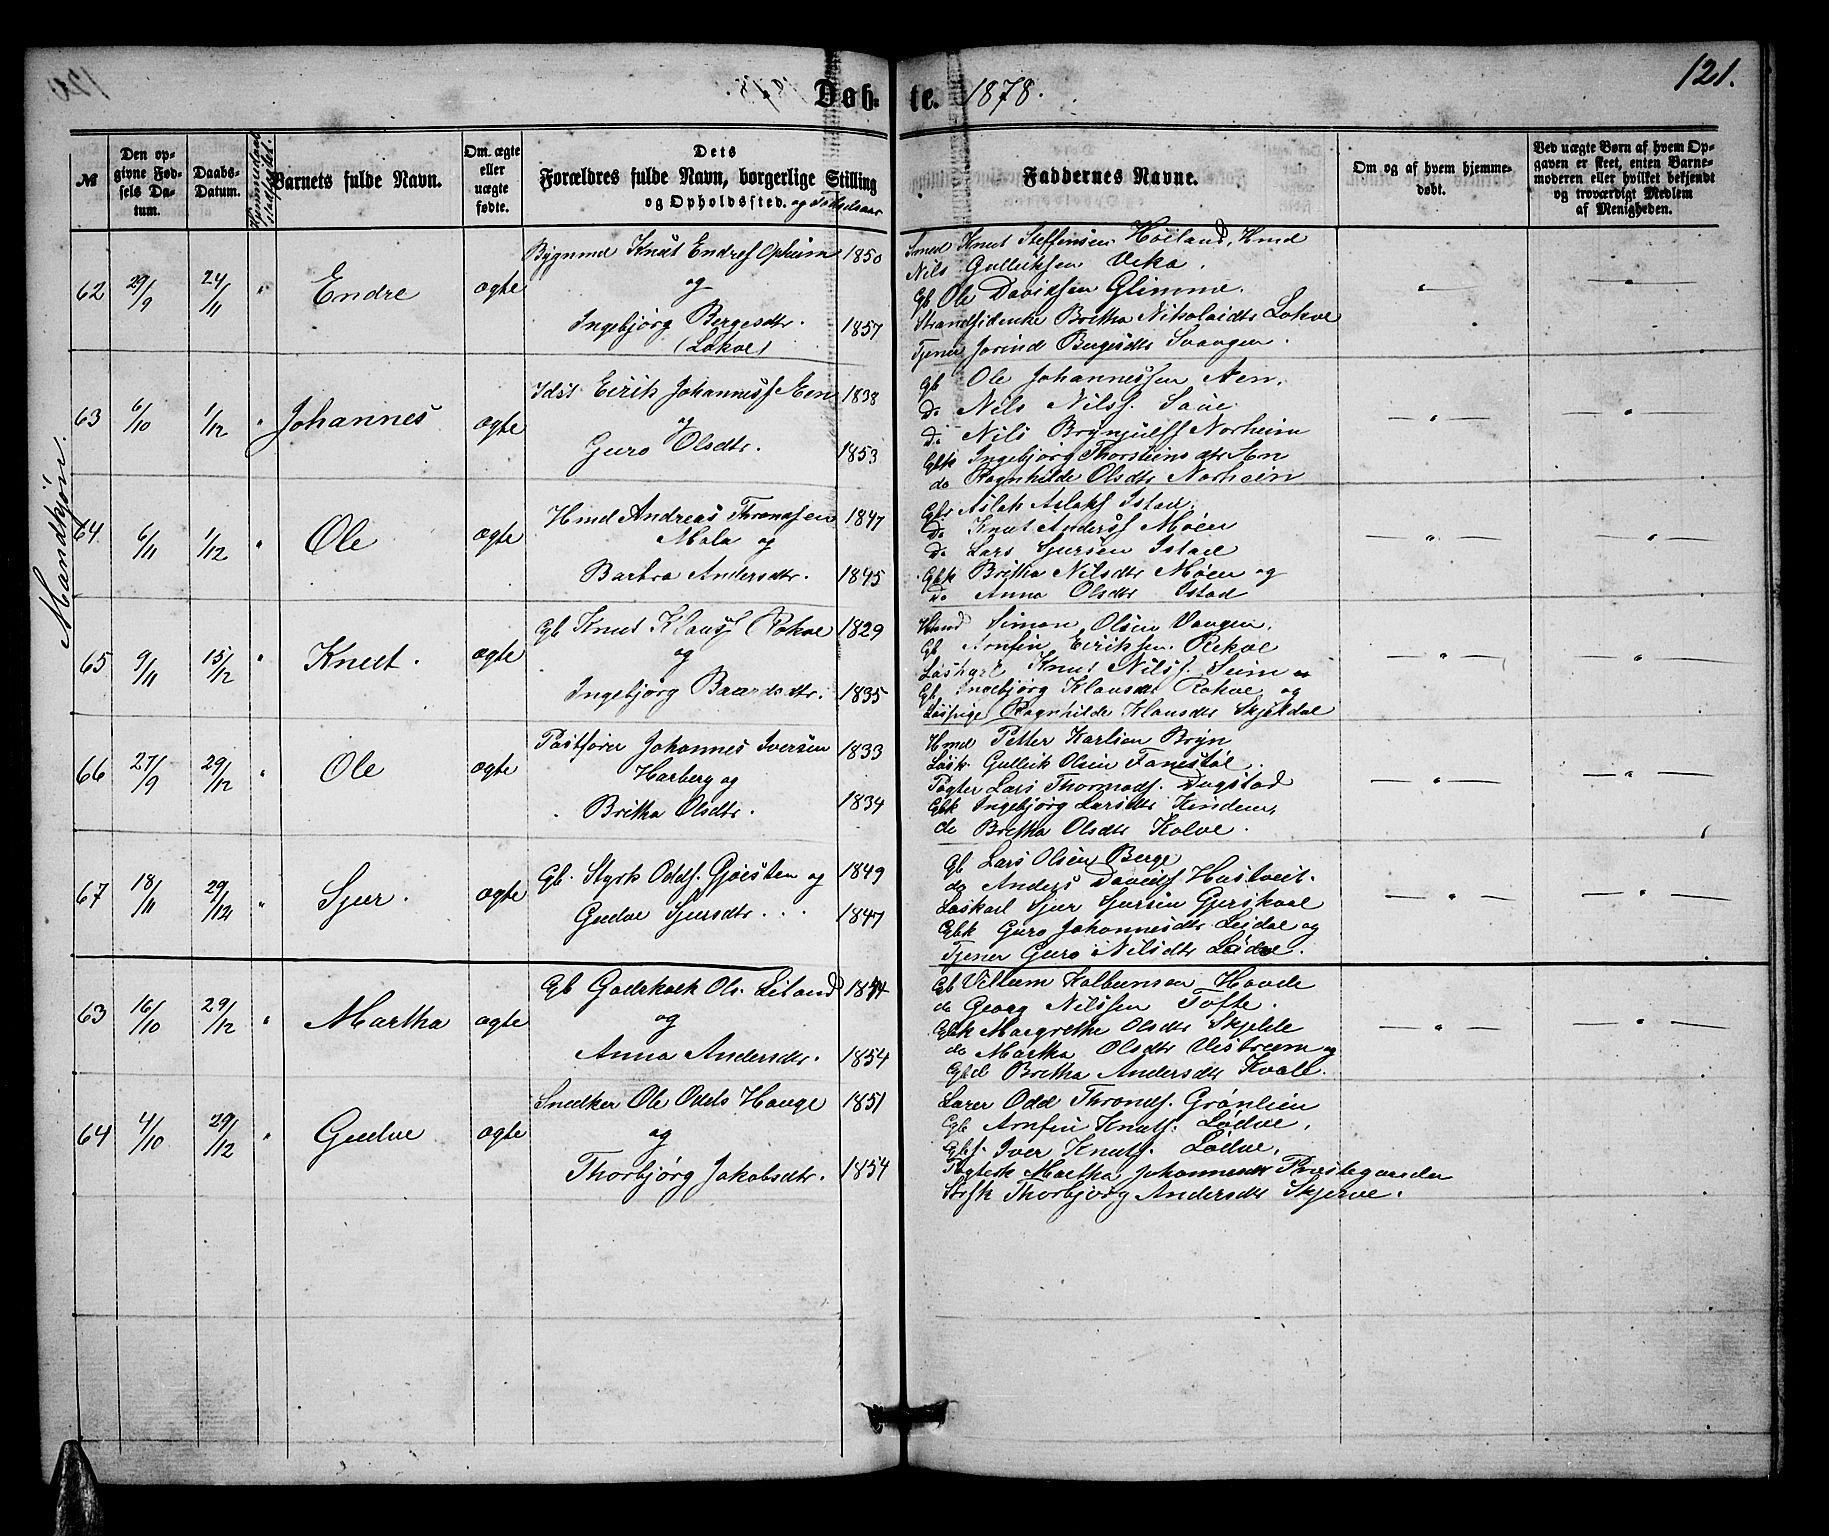 Døb: te. 1878.
121.
№
Den opgivne Fødsels Datum.
Daabs-Datum.
Barnets fulde Navn.
Om ægte eller uægte fødte.
Dets Forældres fulde Navn, borgerlige Stilling og Opholdssted. og Fødselsaar
Faddernes Navne.
Om og af hvem hjemmedøbt.
Ved uægte Børn af hvem Opgaven er skeet, enten Barnemoderen eller hvilket bekjendt og troværdigt Medlem af Menigheden.
Mandkjøn.
62 29/9 24/11 " Endre ægte
Bygnmd Knut Endresf Opheim 1850
og
Ingebjørg Bergesdtr. 1857
(Lokve)
Smed Knut Steffensen Høiland, Hmd
Nils Gulliksen Veka.
Gb Ole Davidsen Glimme.
Strandsidenke Britha Nikolaidtr Lokve
Tjener Jorind Bergesdtr Svangen.
63 6/10 1/12 " Johannes ægte
Idst Eirik Johannesf Aen 1838
og
Guro Olsdtr. 1853
Gb Ole Johannessen Aen.
Do Nils Nilsf. Saue.
Do Nils Brynjulfsf Norheim
Gbk Ingebjørg Thorsteinsdtr Aen
do Ragnhilde Olsdtr Norheim
64 6/11 1/12 " Ole ægte
Hmd Andreas Throndsen 1847
Mala og
Barbra Andersdtr. 1845
Gbs Aslak Aslaksf Istad,
Do Knut Andersf Møen
Do Lars Sjursen Istad
Gbk Britha Nilsdtr Møen og
Do Anna Olsdtr Istad
65 9/11 15/12 " Knut. ægte
Gb Knut Klausf Rokve 1829
og
Ingebjørg Baardsdtr. 1835
Hmd Simon Olsen Vangen.
Gb Arnfin Eiriksen Rekve
Løskarl Knut Nilsf. Seim
Gb. Ingebjørg Klausdtr Rokve og
Løspige Ragnhilde Klausdtr Skjeldal
66 27/9 29/12 " Ole ægte
Postfører Johannes Iversen 1833
Harberg og
Britha Olsdtr. 1834
Hmd Petter Karlsen Bryn
Løsk. Gullik Olsen Fanestøl.
Pagter Lars Thormodsf. Dugstad
Gbk Ingebjørg Larsdtr Kindem,
do Britha Olsdtr Kolve.
67 18/11 29/12 " Sjur. ægte
Gb. Styrk Oddsf. Gjøsten og 1849
Gudve Sjursdtr. 1847
Gb Lars Olsen Berge
do Anders Davidsf. Hustveit.
Løskarl Sjur Sjursen Gjerskvel
Gbk Guro Johannesdtr Leidal og
Tjener Guro Nilsdtr Lødve.
63 16/10 29/12 " Martha ægte
Gb Godskalk Ols. Leiland
og
Anna Andersdtr. 1854
Gb Villum Kolbeinsen Hovde
do Georg Nilssen Tofte.
Gbk Margrethe Olsdtr Skjelde
do Martha Olsdtr Vestrem og
Gbd Britha Andersdtr Kvale.
64 4/10 29/12 " Gudve ægte
Snedker Ole Odds Hauge 1851
og
Thorbjørg Jakobsdtr. 1854
Lærer Odd Throndsf. Grønlien
Gb Arnfin Knutsf. Lødve,
Gbs. Iver Knutsf. Lødve,
Pagtersk Martha Johannesdtr Præstegarden
Thorbjørg Andersdtr Skjerve.